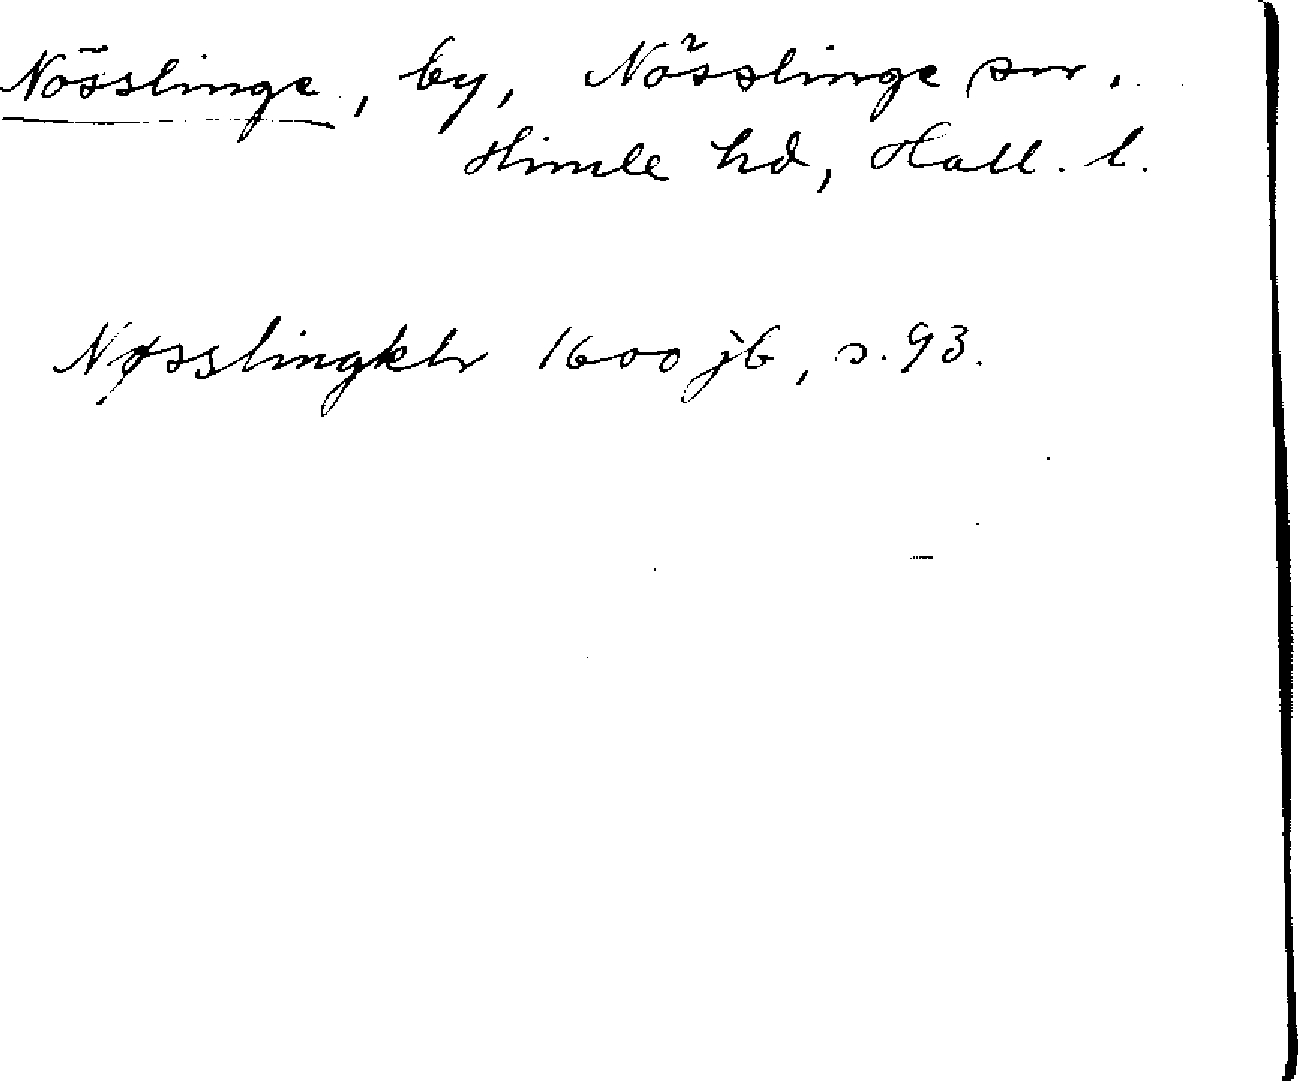 Nösslinge, by, Nösslinge sn,
Himle hd, Hall. l.
Nøsslingklr 1600 jb, s. 93.